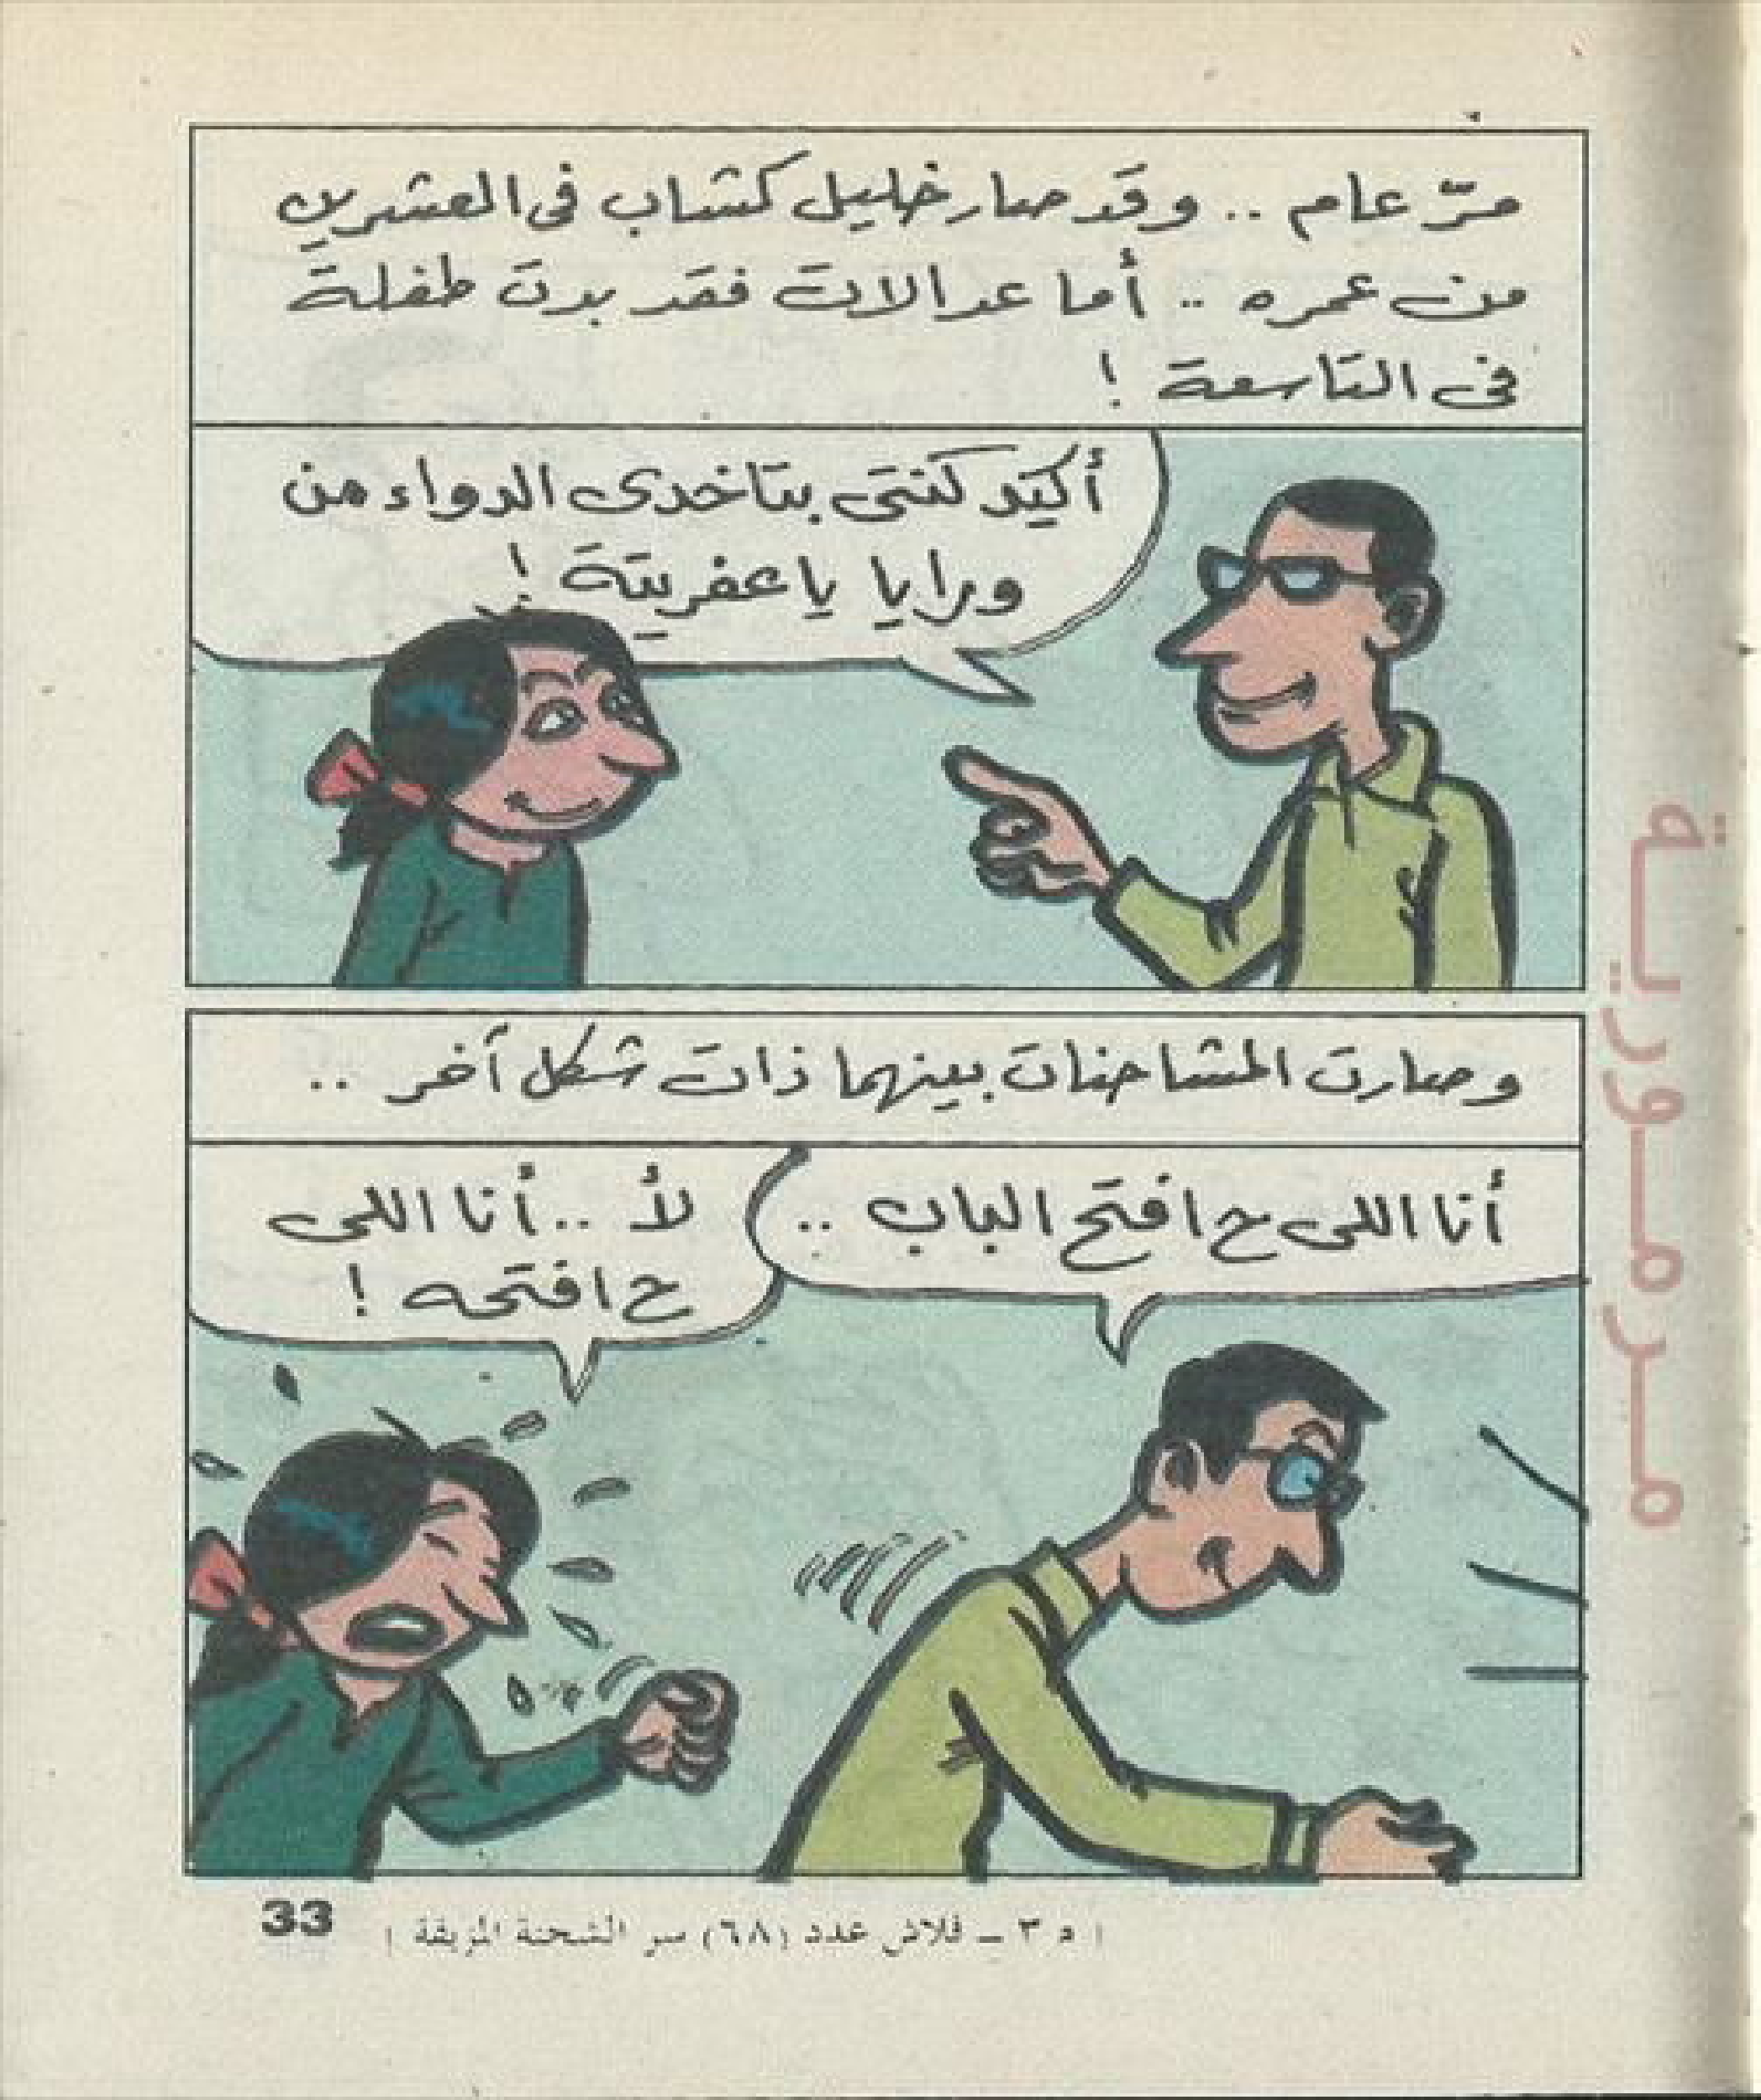 مرّ عام .. وقد صار خليل كشاب فى العشرين
من عمره .. أما عدالات فقد بدت طفلة
فى التاسعة !
أكيد كنتى بتاخدى الدواء من
ورايا يا عفريتة !
وصارت المشاحنات بينهما ذات شكل آخر ..
أنا اللى ح افتح الباب ..
لأ .. أنا اللى
ح افتحه !
( م ٣ ـ فلاش عدد (٦٨) سر الشحنة المزيفة )
33
مرمورية